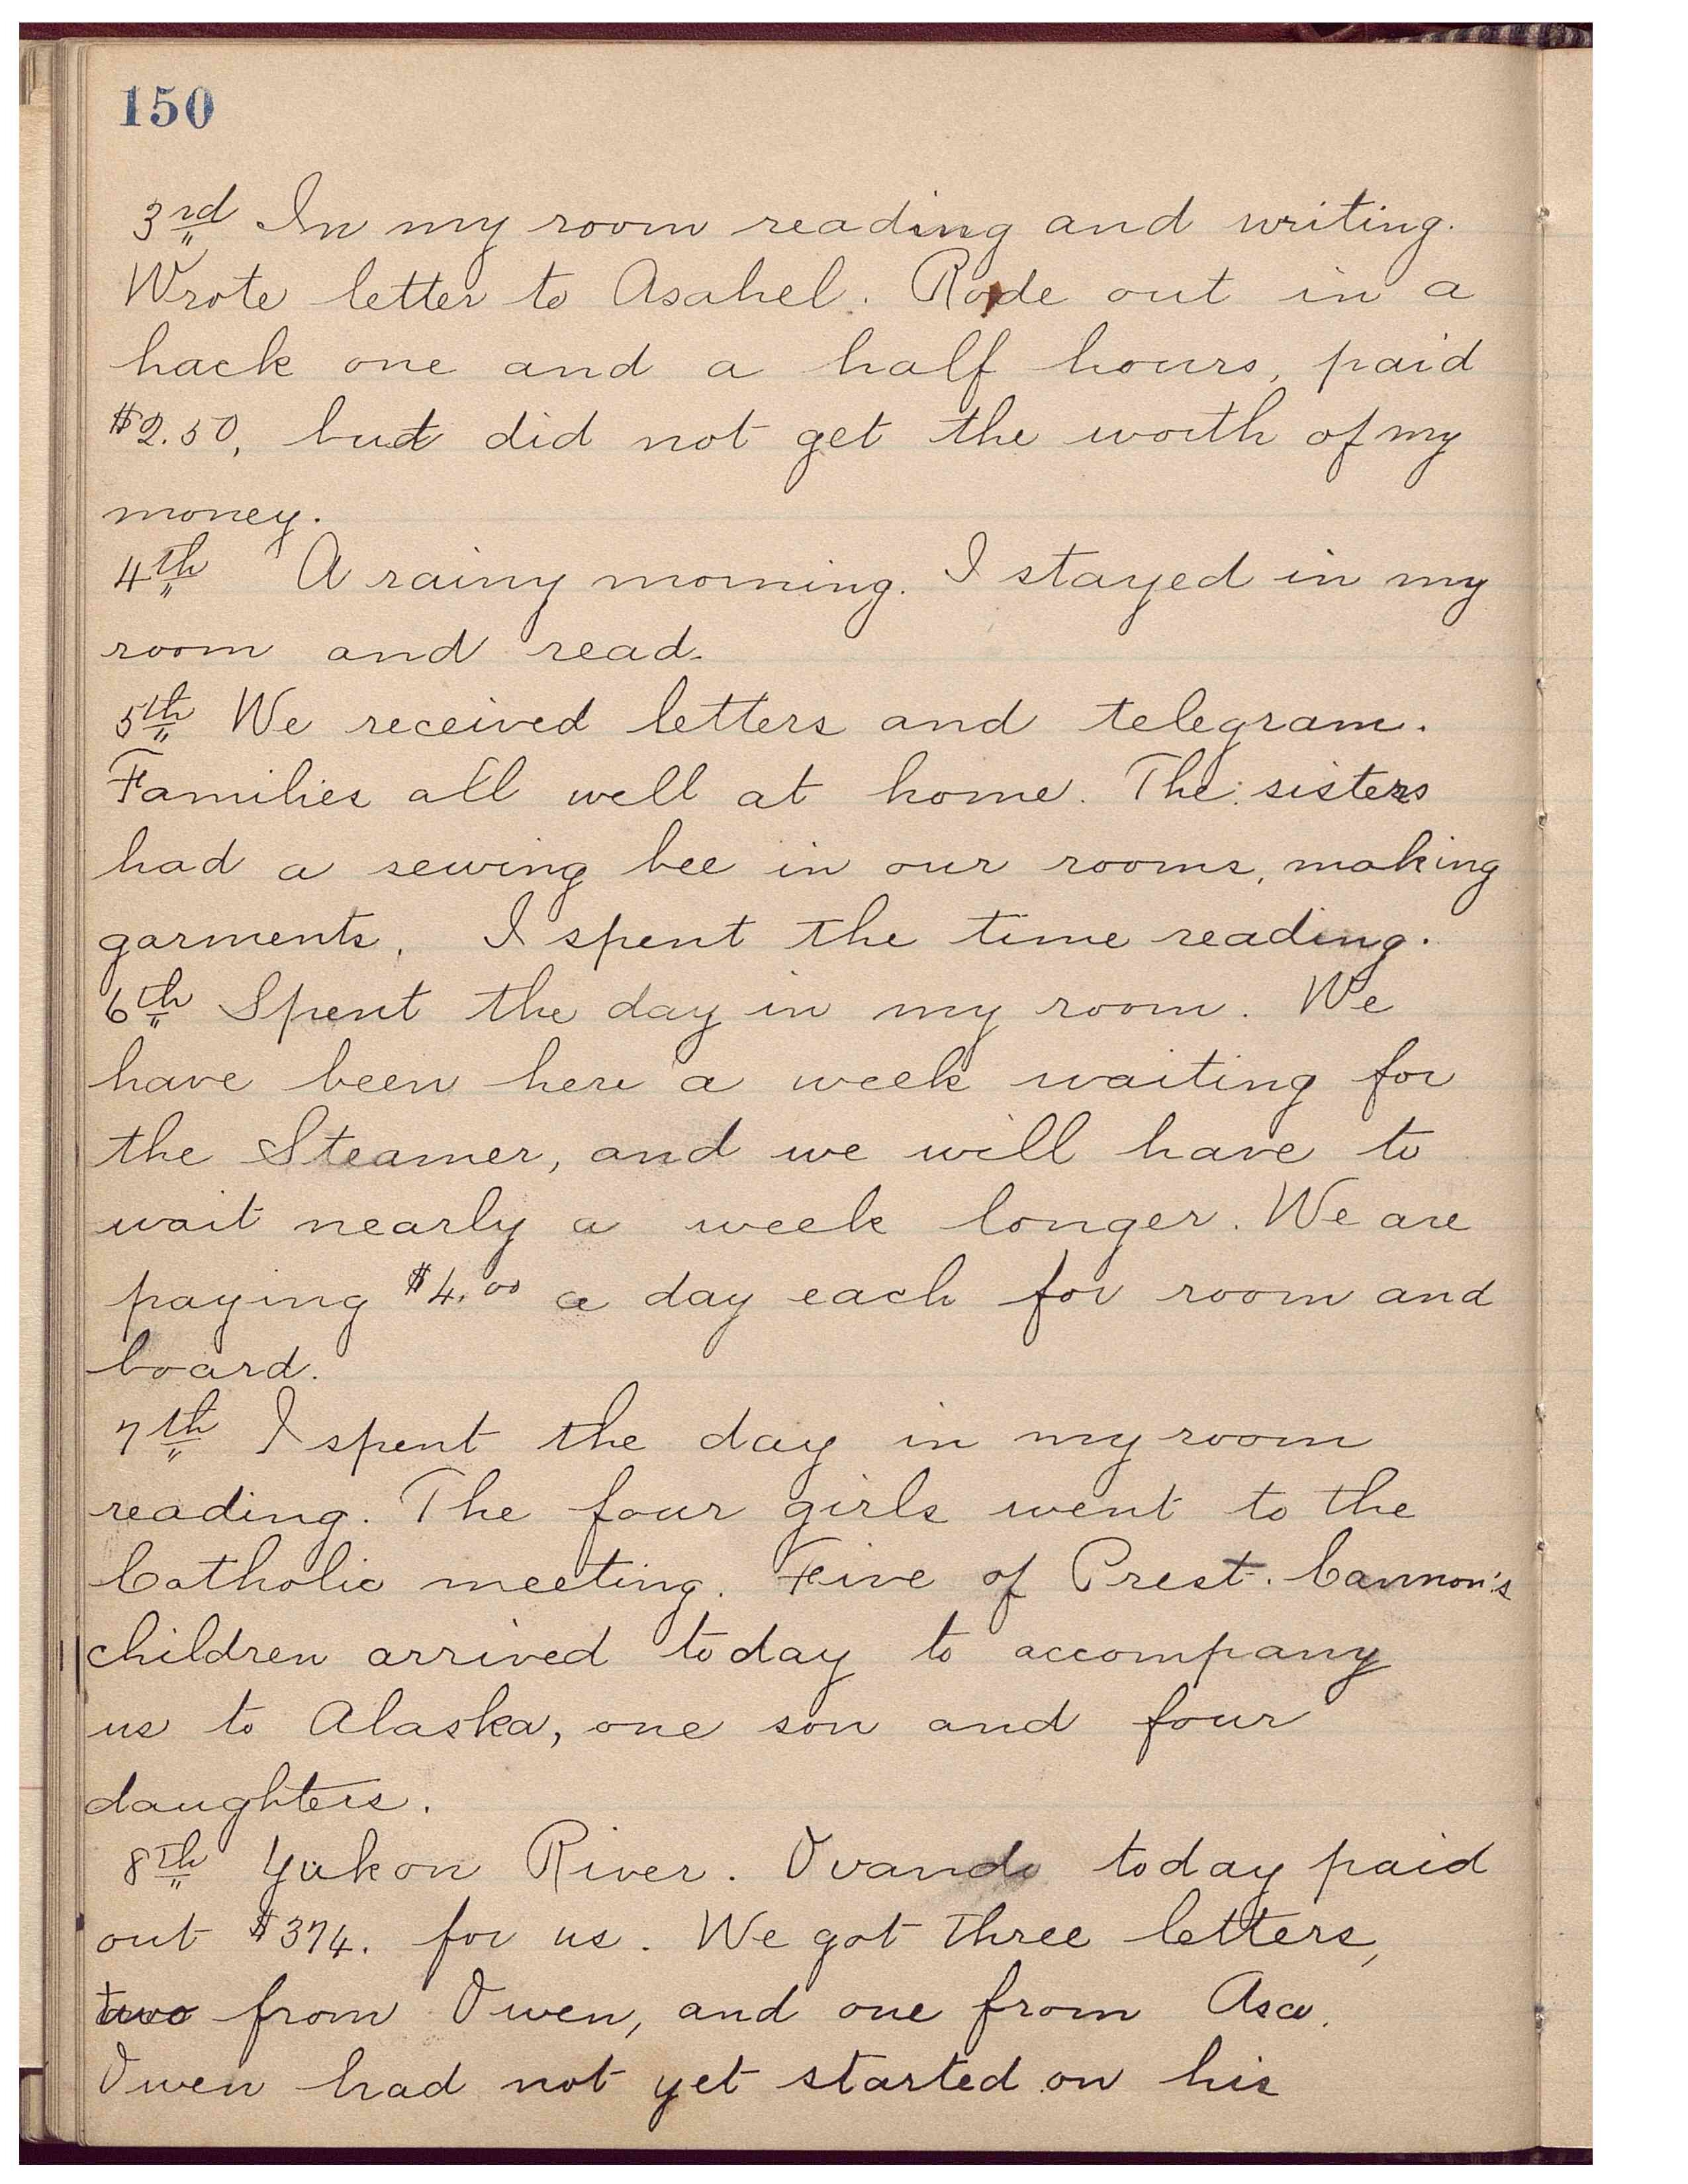 150
3rd In my room reading and writing.
Wrote letter to Asahel. Rode out in a
hack one and a half hours, paid
$2.50, but did not get the worth of my
money.
4th A rainy morning. I stayed in my
room and read.
5th We received letters and telegram.
Families all well at home. The sisters
had a sewing bee in our rooms, making
garments. I spent the time reading.
6th Spent the day in my room. We
have been here a week waiting for
the Steamer, and we will have to
wait nearly a week longer. We are
paying $4.00 a day each for room and
board.
7th I spent the day in my room
reading. The four girls went to the
Catholic meeting. Five of Prest. Cannon's
children arrived today to accompany
us to Alaska, one son and four
daughters.
8th Yukon River. Ovando today paid
out $374. for us. We got three letters,
two from Owen, and one from Asa.
Owen had not yet started on his